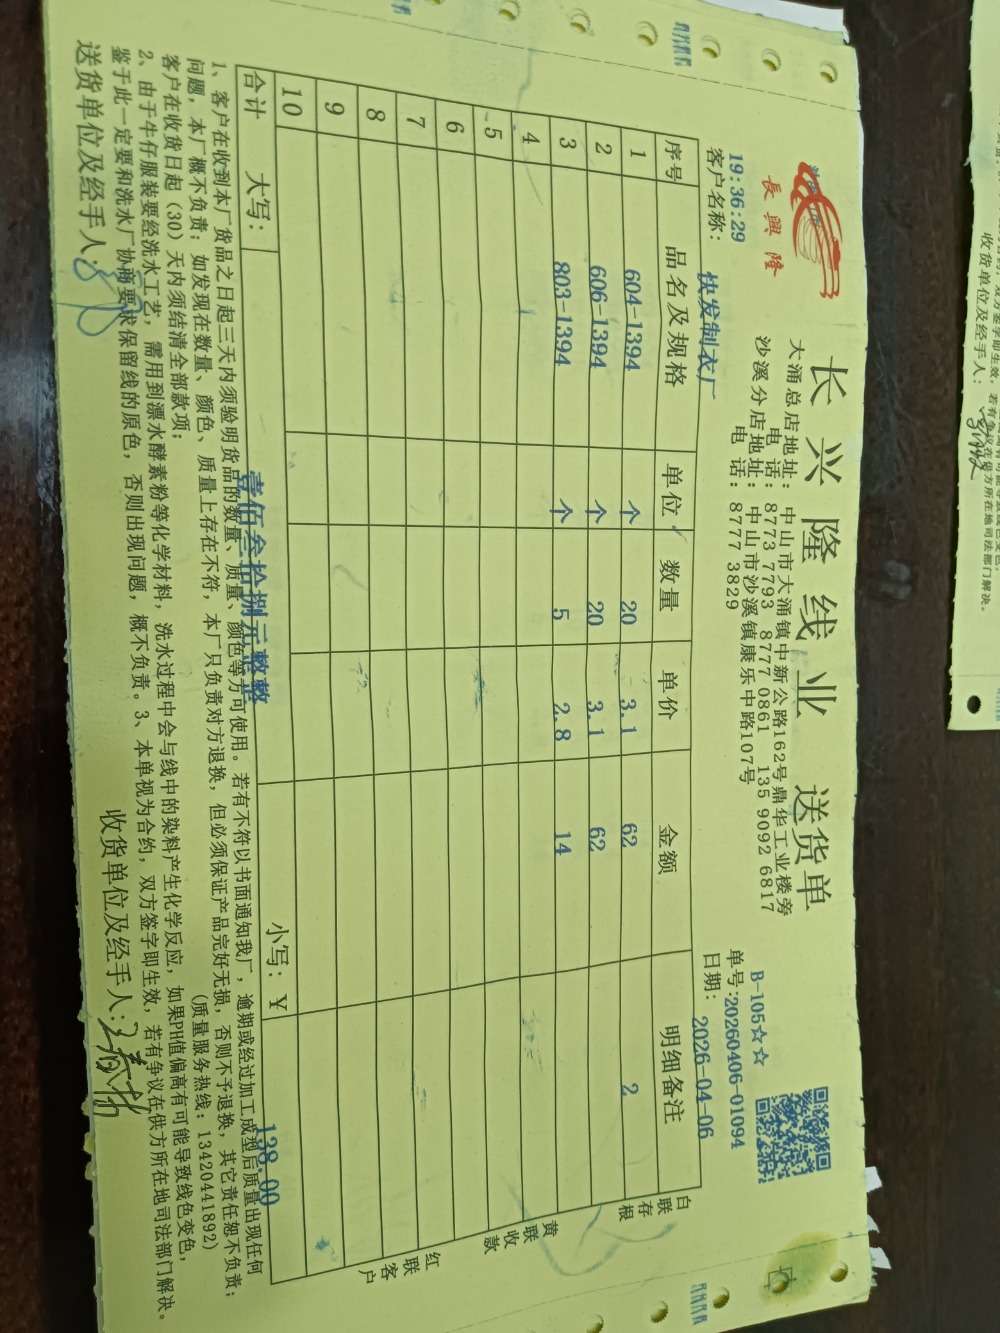 長興隆
长兴隆线业 送货单
大涌总店地址：中山市大涌镇中新公路162号鼎华工业楼旁
电 话：8773 7793 8777 0861 135 9092 6817
沙溪分店地址：中山市沙溪镇康乐中路107号
电 话：8777 3829
B-105☆☆
单号:20260406-01094
日期：2026-04-06
19:36:29
客户名称：快发制衣厂
序号 品名及规格 单位 数量 单价 金额 明细备注
1 604-1394 个 20 3.1 62 2
2 606-1394 个 20 3.1 62
3 803-1394 个 5 2.8 14
4
5
6
7
8
9
10
合计 大写： 壹佰叁拾捌元整整 小写：￥ 138.00
白联存根
黄联收款
红联客户
1、客户在收到本厂货品之日起三天内须验明货品的数量、质量、颜色等方可使用。若有不符以书面通知我厂，逾期或经过加工成型后质量出现任何
问题，本厂概不负责；如发现在数量、颜色、质量上存在不符，本厂只负责对方退换，但必须保证产品完好无损，否则不予退换，其它责任恕不负责；
客户在收货日起（30）天内须结清全部款项； (质量服务热线：13420441892)
2、由于牛仔服装要经洗水工艺，需用到漂水酵素粉等化学材料，洗水过程中会与线中的染料产生化学反应，如果PH值偏高有可能导致线色变色，
鉴于此一定要和洗水厂协商要求保留线的原色，否则出现问题，概不负责。3、本单视为合约，双方签字即生效，若有争议在供方所在地司法部门解决。
送货单位及经手人： 收货单位及经手人：
收货单位及经手人：